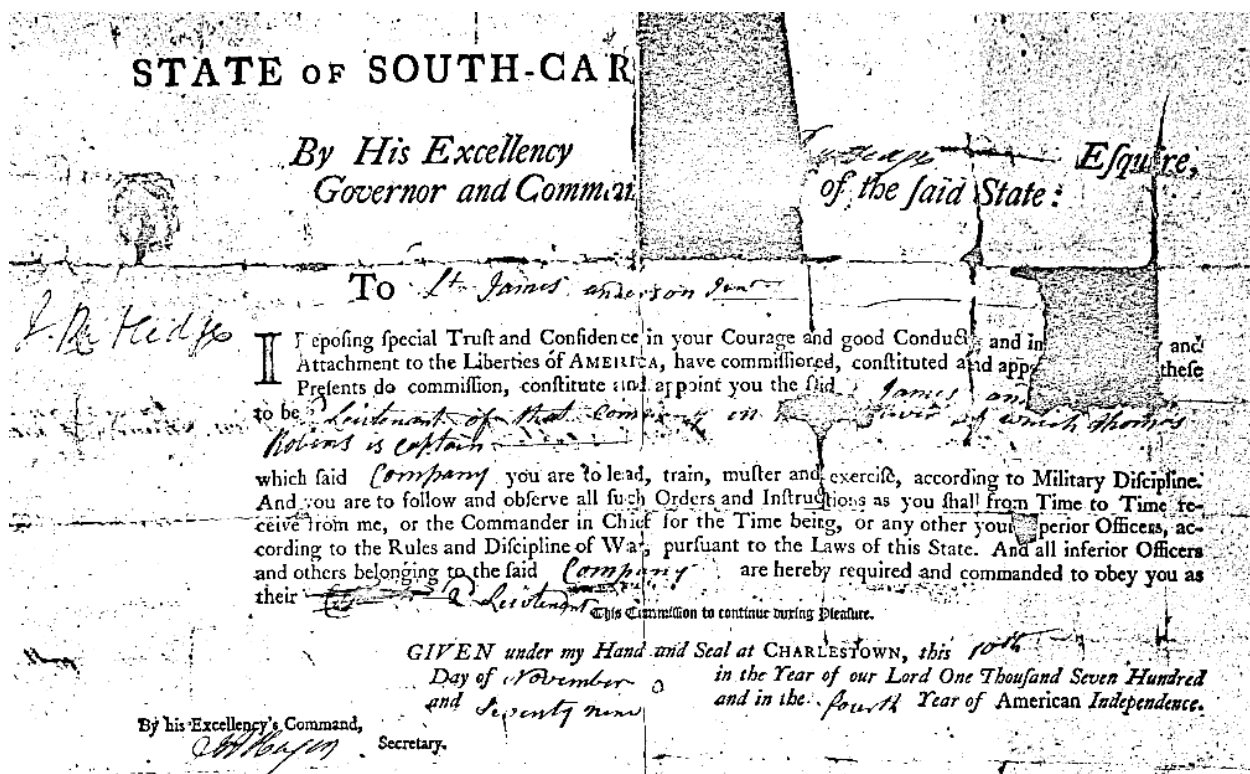 STATE OF SOUTH-CAR
By His Excellency Esquire,
Governor and Comman of the said State:
To Lt James anderson Junr
J. Rutledge
Reposing special Trust and Confidence in your Courage and good Conduct, and in and
Attachment to the Liberties of AMERICA, have commissioned, constituted and app these
Presents do commission, constitute and appoint you the said James an
to be 2 Lieutenant of that company in of which Thomas
Robins is captain
which said Company you are to lead, train, muster and exercise, according to Military Discipline.
And you are to follow and observe all such Orders and Instructions as you shall from Time to Time re-
ceive from me, or the Commander in Chief for the Time being, or any other your perior Officers, ac-
cording to the Rules and Discipline of War, pursuant to the Laws of this State. And all inferior Officers
and others belonging to the said Company are hereby required and commanded to obey you as
their 2 Lieutenant This Commission to continue during Pleasure.
GIVEN under my Hand and Seal at CHARLESTOWN, this 10th
Day of November in the Year of our Lord One Thousand Seven Hundred
and Seventy nine and in the fourth Year of American Independence.
By his Excellency's Command,
Secretary.